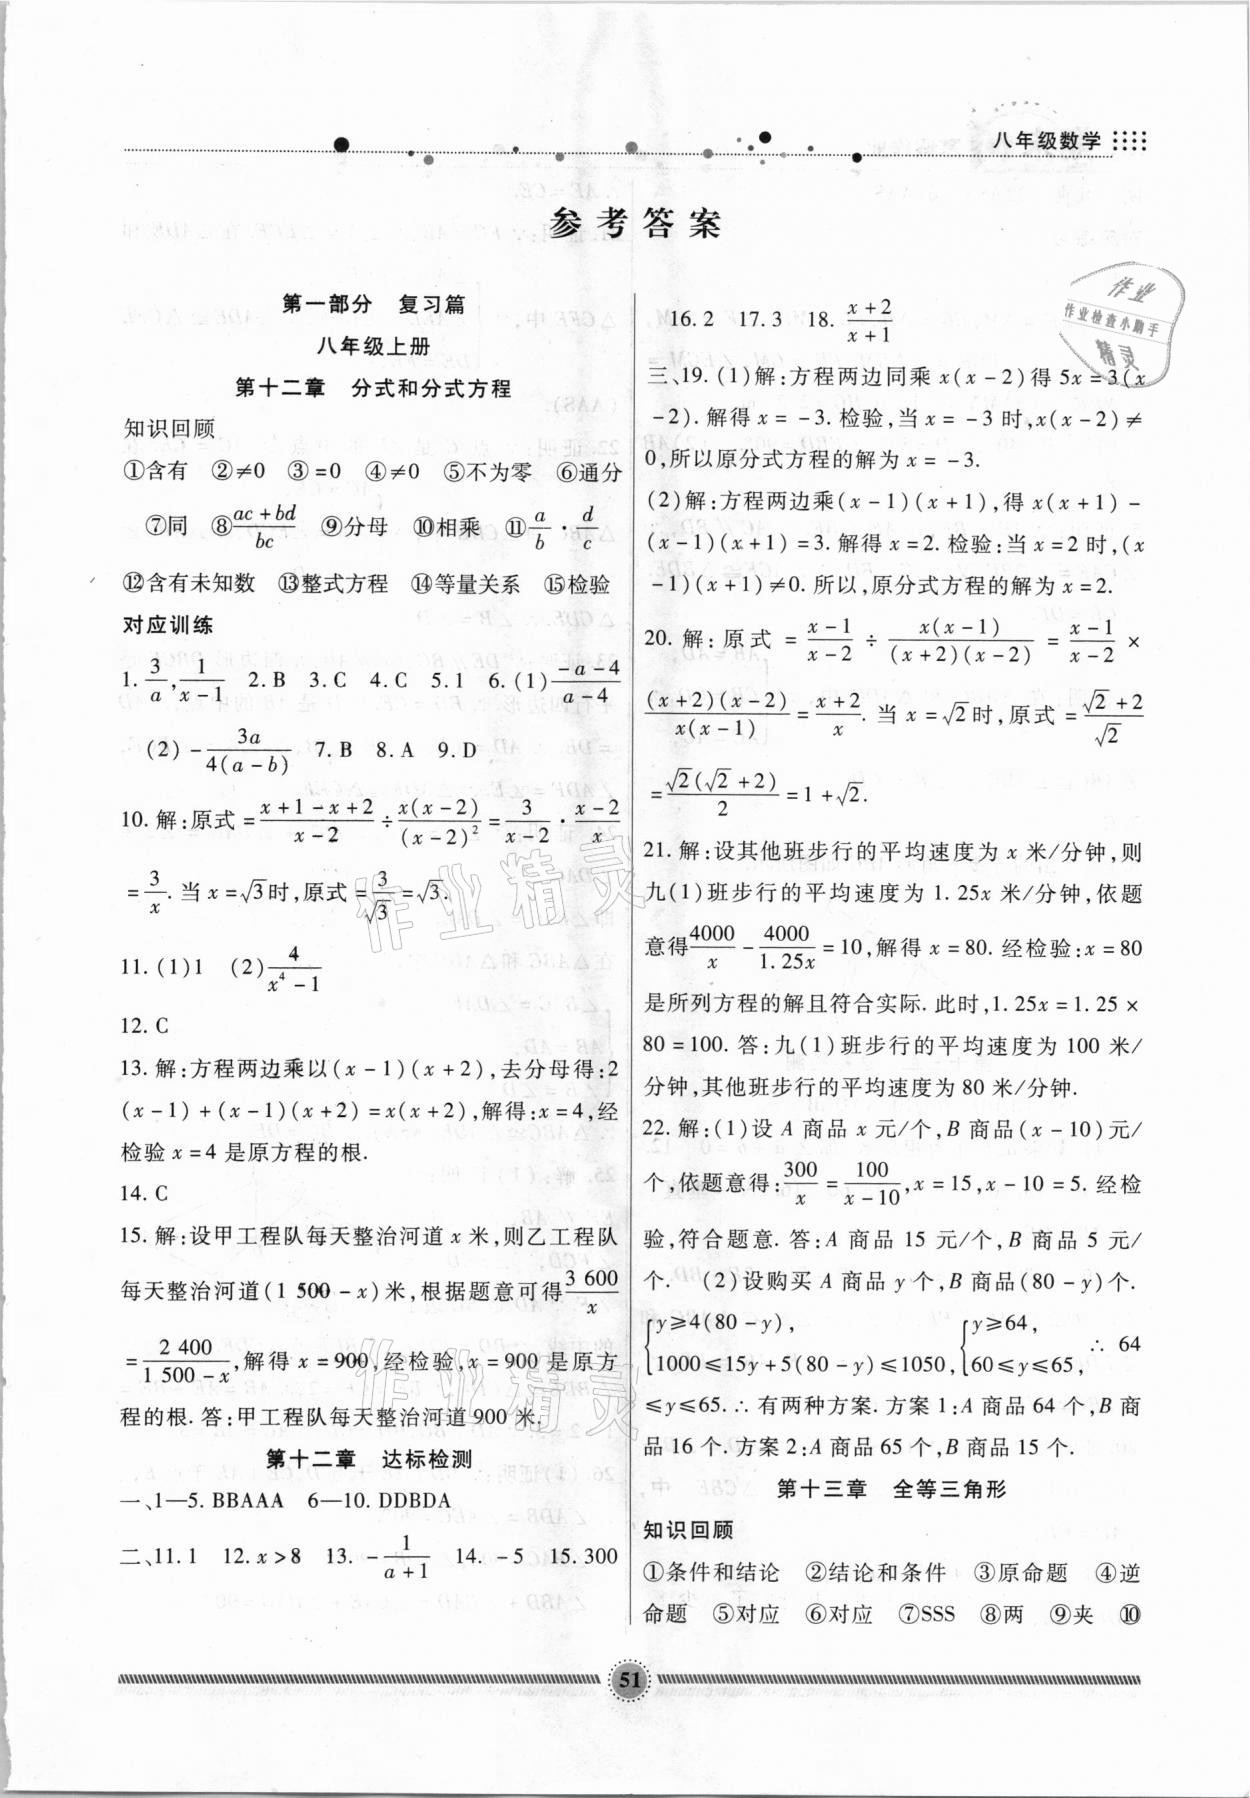 八年级数学
参考答案
第一部分 复习篇
八年级上册
第十二章 分式和分式方程
知识回顾
①含有 ②≠0 ③=0 ④≠0 ⑤不为零 ⑥通分
⑦同 ⑧(ac+bd)/(bc) ⑨分母 ⑩相乘 ⑪a/b·d/c
⑫含有未知数 ⑬整式方程 ⑭等量关系 ⑮检验
对应训练
1. 3/a, 1/(x-1) 2. B 3. C 4. C 5. 1 6. (1)(-a-4)/(a-4)
(2) -3a/(4(a-b)) 7. B 8. A 9. D
10. 解:原式=(x+1-x+2)/(x-2)÷x(x-2)/(x-2)²=3/(x-2)·(x-2)/x
=3/x. 当 x=√3时,原式=3/√3=√3.
11. (1)1 (2)4/(x⁴-1)
12. C
13. 解:方程两边乘以(x-1)(x+2),去分母得:2
(x-1)+(x-1)(x+2)=x(x+2),解得:x=4,经
检验 x=4 是原方程的根.
14. C
15. 解:设甲工程队每天整治河道 x 米,则乙工程队
每天整治河道(1 500-x)米,根据题意可得3 600/x
=2 400/(1 500-x),解得 x=900,经检验,x=900 是原方
程的根. 答:甲工程队每天整治河道900 米.
第十二章 达标检测
一、1—5. BBAAA 6—10. DDBDA
二、11. 1 12. x>8 13. -1/(a+1) 14. -5 15. 300
16. 2 17. 3 18. (x+2)/(x+1)
三、19. (1)解:方程两边同乘 x(x-2)得 5x=3(x
-2). 解得 x=-3. 检验,当 x=-3 时,x(x-2)≠
0,所以原分式方程的解为 x=-3.
(2)解:方程两边乘(x-1)(x+1),得 x(x+1)-
(x-1)(x+1)=3. 解得 x=2. 检验:当 x=2 时,(x
-1)(x+1)≠0. 所以,原分式方程的解为 x=2.
20. 解:原式=(x-1)/(x-2)÷x(x-1)/((x+2)(x-2))=(x-1)/(x-2)×
(x+2)(x-2)/(x(x-1))=(x+2)/x. 当 x=√2时,原式=(√2+2)/√2
=√2(√2+2)/2=1+√2.
21. 解:设其他班步行的平均速度为 x 米/分钟,则
九(1)班步行的平均速度为 1.25x 米/分钟,依题
意得4000/x-4000/1.25x=10,解得 x=80. 经检验:x=80
是所列方程的解且符合实际. 此时,1.25x=1.25×
80=100. 答:九(1)班步行的平均速度为 100 米/
分钟,其他班步行的平均速度为 80 米/分钟.
22. 解:(1)设 A 商品 x 元/个,B 商品(x-10)元/
个,依题意得:300/x=100/(x-10),x=15,x-10=5. 经检
验,符合题意. 答:A 商品 15 元/个,B 商品5 元/
个. (2)设购买 A 商品 y 个,B 商品(80-y)个.
{y≥4(80-y), {y≥64,
1000≤15y+5(80-y)≤1050, 60≤y≤65, ∴ 64
≤y≤65. ∴ 有两种方案. 方案 1:A 商品 64 个,B 商
品 16 个. 方案 2:A 商品 65 个,B 商品 15 个.
第十三章 全等三角形
知识回顾
①条件和结论 ②结论和条件 ③原命题 ④逆
命题 ⑤对应 ⑥对应 ⑦SSS ⑧两 ⑨夹 ⑩
51
作业
作业检查小助手
精灵
作业精灵
作业精灵